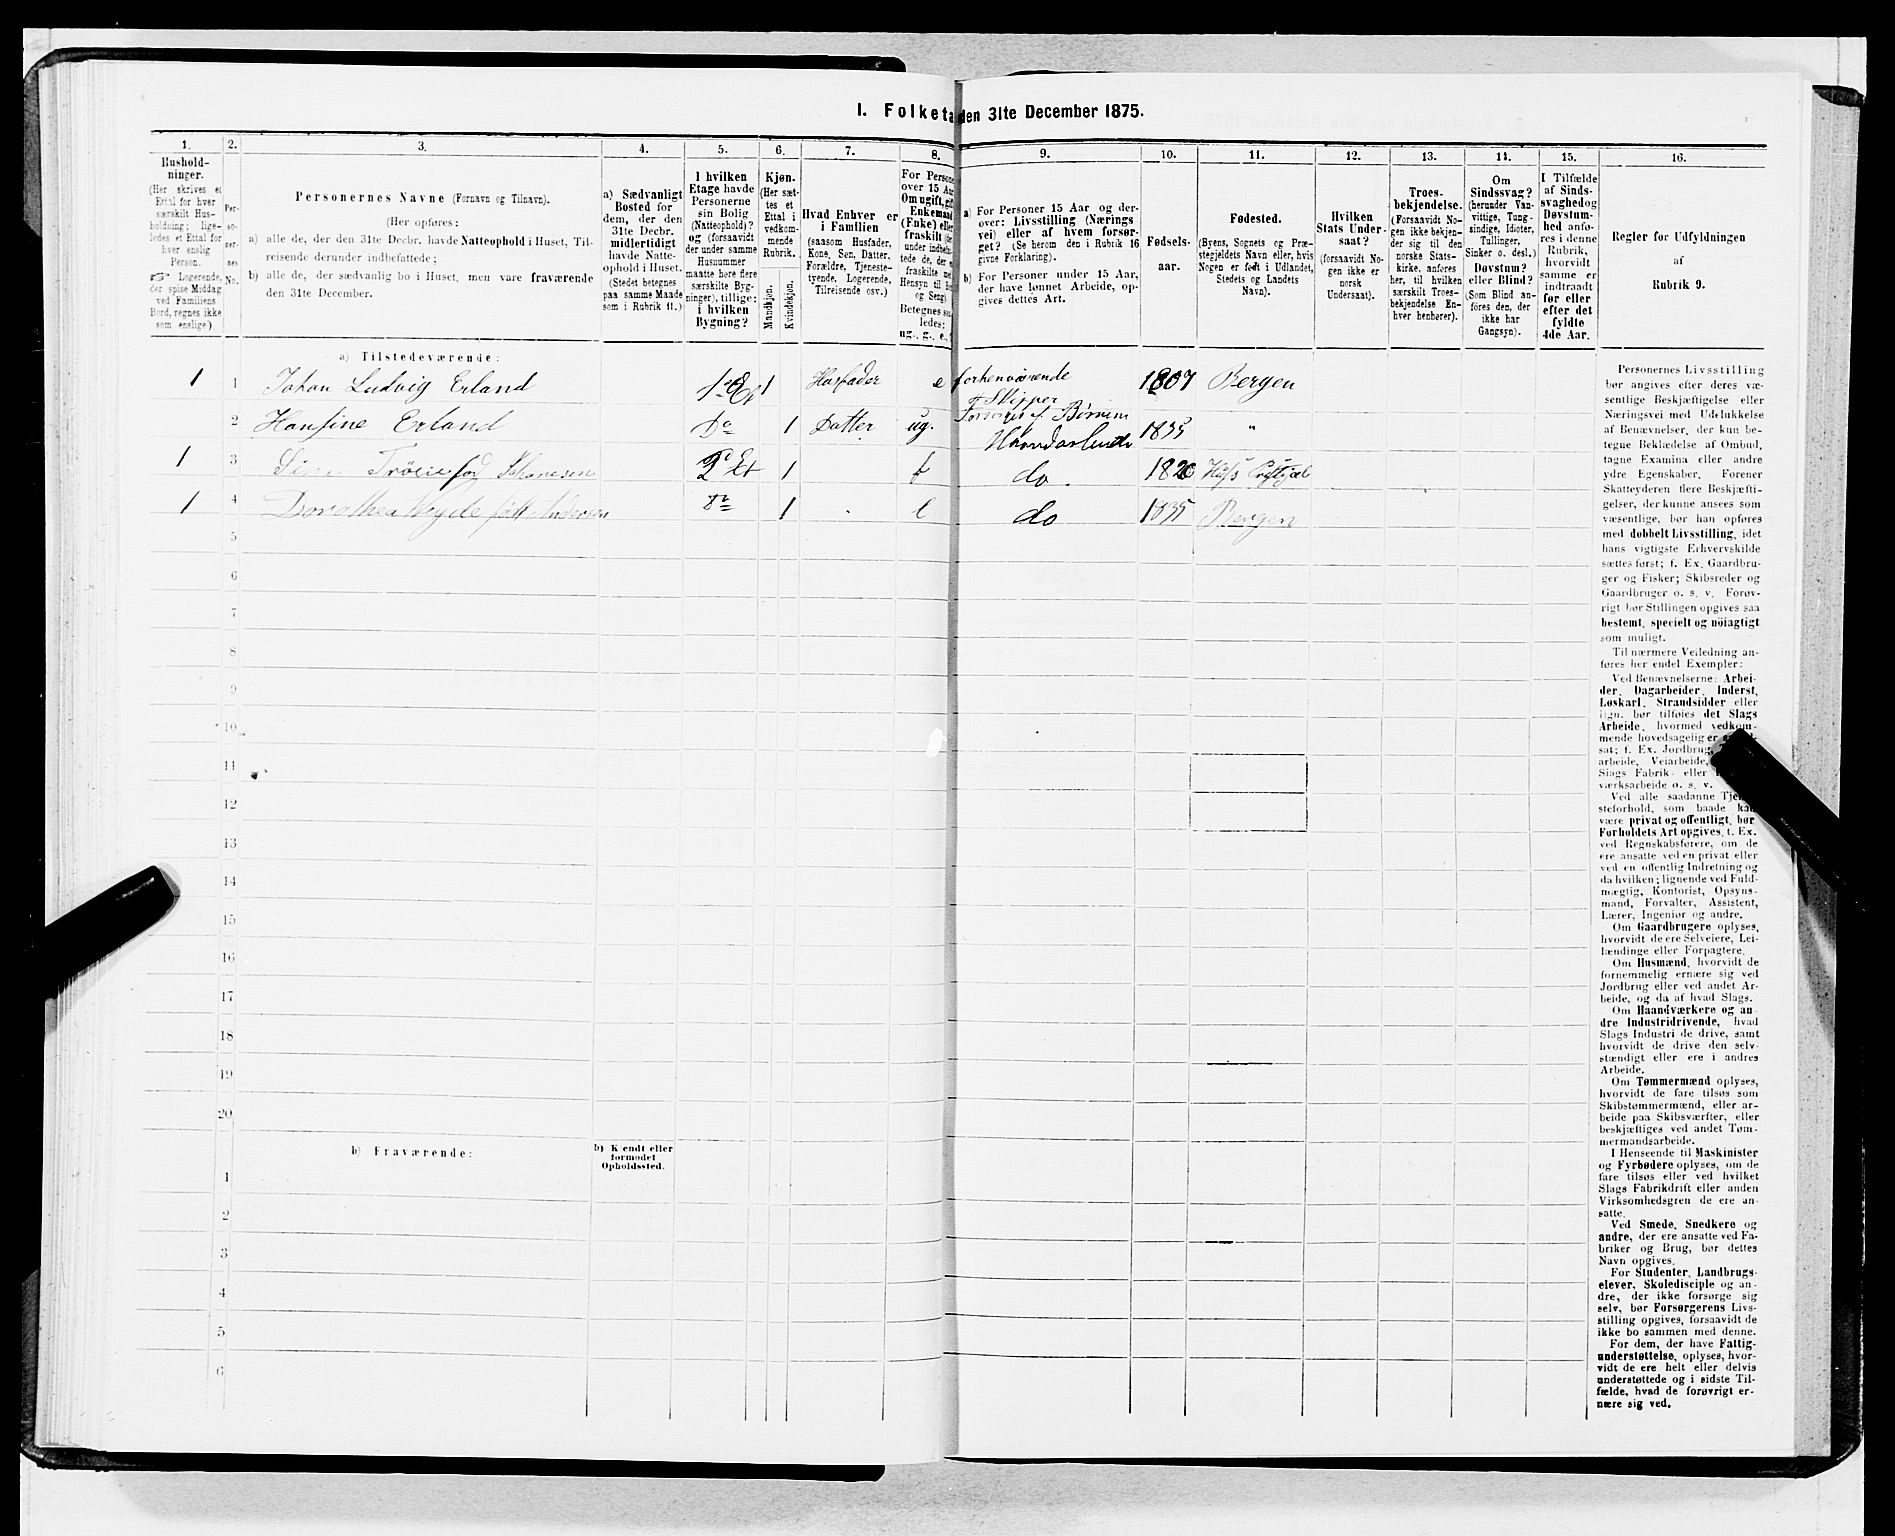 I. Folketa
den 31te December 1875.
1.
2.
3.
4.
5.
6.
7.
8.
9.
10.
11.
12.
13.
14.
15.
16.
Hushold-
ninger.
(Her skrives et
Ettal for hver
særskilt Hus-
holdning; lige-
ledes et Ettal for
hver enslig
Person.
☞ Logerende,
der spise Middag
ved Familiens
Bord, regnes ikke
som enslige.)
Per-
so-
ner-
nes
No.
Personernes Navne (Fornavn og Tilnavn).
(Her opføres:
a) alle de, der den 31te Decbr. havde Natteophold i Huset, Til-
reisende derunder indbefattede;
b) alle de, der sædvanlig bo i Huset, men vare fraværende
den 31te December.
a) Sædvanligt
Bosted for
dem, der den
31te Decbr.
midlertidigt
havde Natte-
ophold i Huset.
(Stedet betegnes
paa samme Maade
som i Rubrik 11.)
I hvilken
Etage havde
Personerne
sin Bolig
(Natteophold)?
og (forsaavidt
der under samme
Husnummer
maatte høre flere
særskilte Byg-
ninger), tillige:
i hvilken
Bygning?
Kjøn.
(Her sæt-
tes et
Ettal i
vedkom-
mende
Rubrik.
Mandkjøn.
Kvindekjøn.
Hvad Enhver er
i Familien
(saasom Husfader,
Kone, Søn, Datter,
Forældre, Tjeneste-
tyende, Logerende,
Tilreisende osv.)
For Persone
over 15 Aar
Om ugift, gift
Enkemand
(Enke) eller
fraskilt (de
under indbefat-
tede de, der e
fraskilte med
Hensyn til Bo
og Seng).
Betegnes saa-
ledes:
ug., g., e.,
a) For Personer 15 Aar og der-
over: Livsstilling (Nærings
vei) eller af hvem forsør-
get? (Se herom den i Rubrik 16
givne Forklaring).
b) For Personer under 15 Aar,
der have lønnet Arbeide, op-
gives dettes Art.
Fødsels-
aar.
Fødested.
(Byens, Sognets og Præ-
stegjeldets Navn eller, hvis
Nogen er født i Udlandet,
Stedets og Landets
Navn).
Hvilken
Stats Under-
saat?
(forsaavidt No-
gen ikke er
norsk
Undersaat).
Troes-
bekjendelse.
(Forsaavidt No-
gen ikke bekjen-
der sig til den
norske Stats-
kirke, anføres
her, til hvilken
særskilt Troes-
bekjendelse En-
hver henhører).
Om
Sindssvag?
(herunder Van-
vittige, Tung-
sindige, Idioter,
Tullinger,
Sinker o. desl.)
Døvstum?
eller Blind?
(Som Blind an-
føres den, der
ikke har
Gangsyn).
I Tilfælde
af Sinds-
svaghed og
Døvstum-
hed anfø-
res i denne
Rubrik,
hvorvidt
samme er
indtraadt
før eller
efter det
fyldte
4de Aar.
Regler for Udfyldningen
af
Rubrik 9.
a) Tilstedeværende:
1 1 Johan Ludvig Erland 1ste Et 1 Husfader e forhenværende Skipper 1807 Bergen
2 Hansine Erland Do 1 Datter ug. Forsørges af Haandarbeide 1835 "
1 3 2 Et 1 do 1820
1 4 Dorothea født Andersen Do 1 e do 1835 Bergen
5
6
7
8
9
10
11
12
13
14
15
16
17
18
19
20
b) Fraværende:
b) Kjendt eller
formodet
Opholdssted.
1
2
3
4
5
6
Personernes Livsstilling
bør angives efter deres væ-
sentlige Beskjæftigelse eller
Næringsvei med Udelukkelse
af Benævnelser, der kun be-
tegne Beklædelse af Ombud,
tagne Examina eller andre
ydre Egenskaber. Forener
Skatteyderen flere Beskjæfti-
gelser, der kunne ansees som
væsentlige, bør han opføres
med dobbelt Livsstilling, idet
hans vigtigste Erhvervskilde
sættes først; f. Ex. Gaardbru-
ger og Fisker; Skibsreder og
Gaardbruger o. s. v. Forøv-
rigt bør Stillingen opgives saa
bestemt, specielt og nöiagtigt
som muligt.
Til nærmere Veiledning an-
føres her endel Exempler:
Ved Benævnelserne: Arbei-
der, Dagarbeider, Inderst,
Løskarl, Strandsidder eller
lign. bør tilføies det Slags
Arbeide, hvormed vedkom-
mende hovedsagelig er
sat; f. Ex. Jordbrug,
arbeide, Veiarbeide,
Slags Fabrik- eller
værksarbeide o. s. v.
Ved alle saadanne Tje
steforhold, som baade kan
være privat og offentligt, bør
Forholdets Art opgives, t. Ex.
ved Regnskabsførere, om de
ere ansatte ved en privat eller
ved en offentlig Indretning og
da hvilken; lignende ved Fuld-
mægtig, Kontorist, Opsyns-
mand, Forvalter, Assistent,
Lærer, Ingeniør og andre.
Om Gaardbrugere oplyses,
hvorvidt de ere Selveiere, Lei-
lændinge eller Forpagtere.
Om Husmænd, hvorvidt de
fornemmelig ernære sig ved
Jordbrug eller ved andet Ar-
beide, og da af hvad Slags.
Om Haandværkere og an-
dre Industridrivende, hvad
Slags Industri de drive, samt
hvorvidt de drive den selv-
stændigt eller ere i andres
Arbeide.
Om Tømmermænd oplyses,
hvorvidt de fare tilsøs som
Skibstømmermænd, eller ar-
beide paa Skibsværfter, eller
beskjæftiges ved andet Tøm-
mermandsarbeide.
I Henseende til Maskinister
og Fyrbødere oplyses, om de
fare tilsøs eller ved hvilket
Slags Fabrikdrift eller anden
Virksomhedsgren de ere an-
satte.
Ved Smede, Snedkere og
andre, der ere ansatte ved Fa-
briker og Brug, bør dettes
Navn opgives.
For Studenter, Landbrugs-
elever, Skoledisciple og an-
dre, der ikke forsørge sig
selv, bør Forsørgerens Livs-
stilling opgives, forsaavidt de
ikke bo sammen med denne.
For dem, der have Fattig-
understøttelse, oplyses, hvor-
vidt de ere helt eller delvis
understøttede og i sidste Til-
fælde, hvad de forøvrigt er-
nære sig ved.